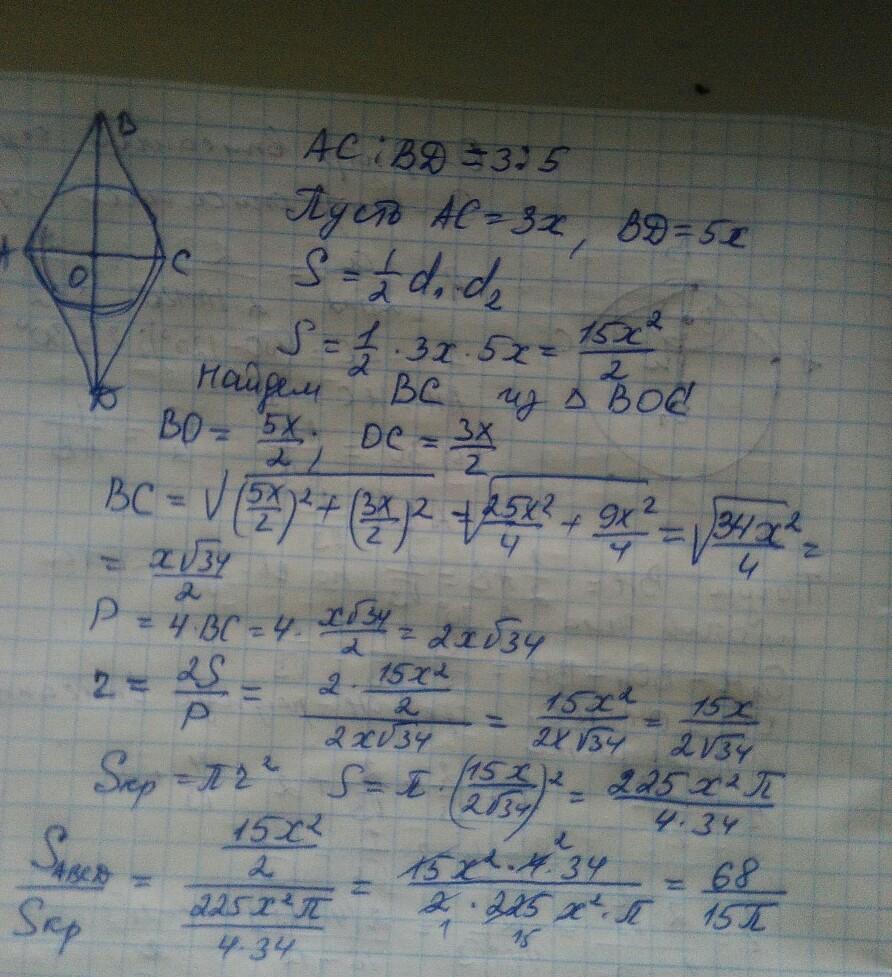 B
A
O
C
D
AC : BD = 3:5
Пусть AC = 3x, BD = 5x
S = 1/2 d₁·d₂
S = 1/2 · 3x · 5x = 15x²/2
Найдем BC из △ BOC
BO = 5x/2; OC = 3x/2
BC = √((5x/2)² + (3x/2)²) = √(25x²/4 + 9x²/4) = √(34x²/4) =
= x√34/2
P = 4·BC = 4· x√34/2 = 2x√34
r = 2S/P = (2 · 15x²/2)/(2x√34) = 15x²/(2x√34) = 15x/(2√34)
Sкр = πr² S = π·(15x/(2√34))² = 225x²π/(4·34)
S_ABCD/Sкр = (15x²/2)/(225x²π/(4·34)) = (15x²·4·34)/(2·225x²·π) = 68/(15π)